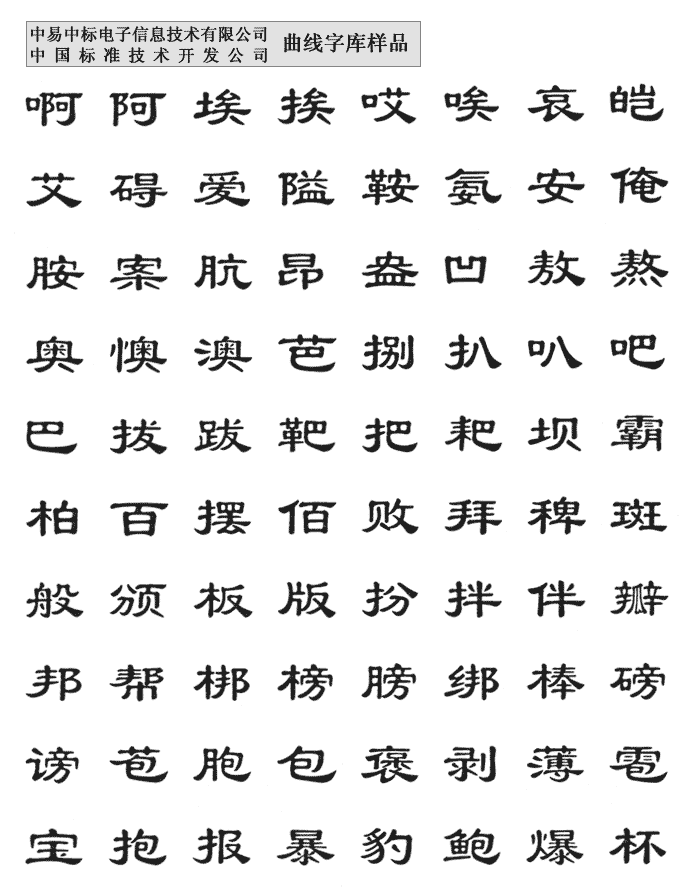 中易中标电子信息技术有限公司
中国标准技术开发公司
曲线字库样品
啊阿埃挨哎唉哀皑
艾碍爱隘鞍氨安俺
胺案肮昂盎凹敖熬
奥懊澳芭捌扒叭吧
巴拔跋靶把耙坝霸
柏百摆佰败拜稗斑
般颁板版扮拌伴瓣
邦帮梆榜膀绑棒磅
谤苞胞包褒剥薄雹
宝抱报暴豹鲍爆杯